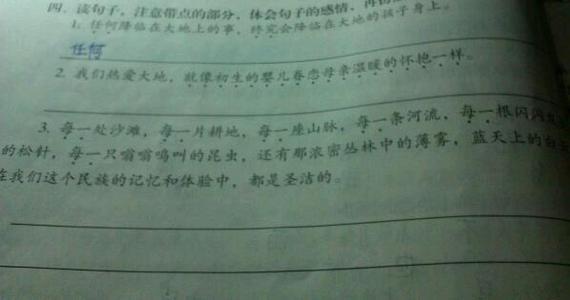 四、读句子，注意带点的部分，体会句子的感情，再仿
1. 任何降临在大地上的事，终究会降临在大地的孩子身上。
任何
2. 我们热爱大地，就像初生的婴儿眷恋母亲温暖的怀抱一样。
3. 每一处沙滩，每一片耕地，每一座山脉，每一条河流，每一根闪闪发
的松针，每一只嗡嗡鸣叫的昆虫，还有那浓密丛林中的薄雾，蓝天上的白
在我们这个民族的记忆和体验中，都是圣洁的。